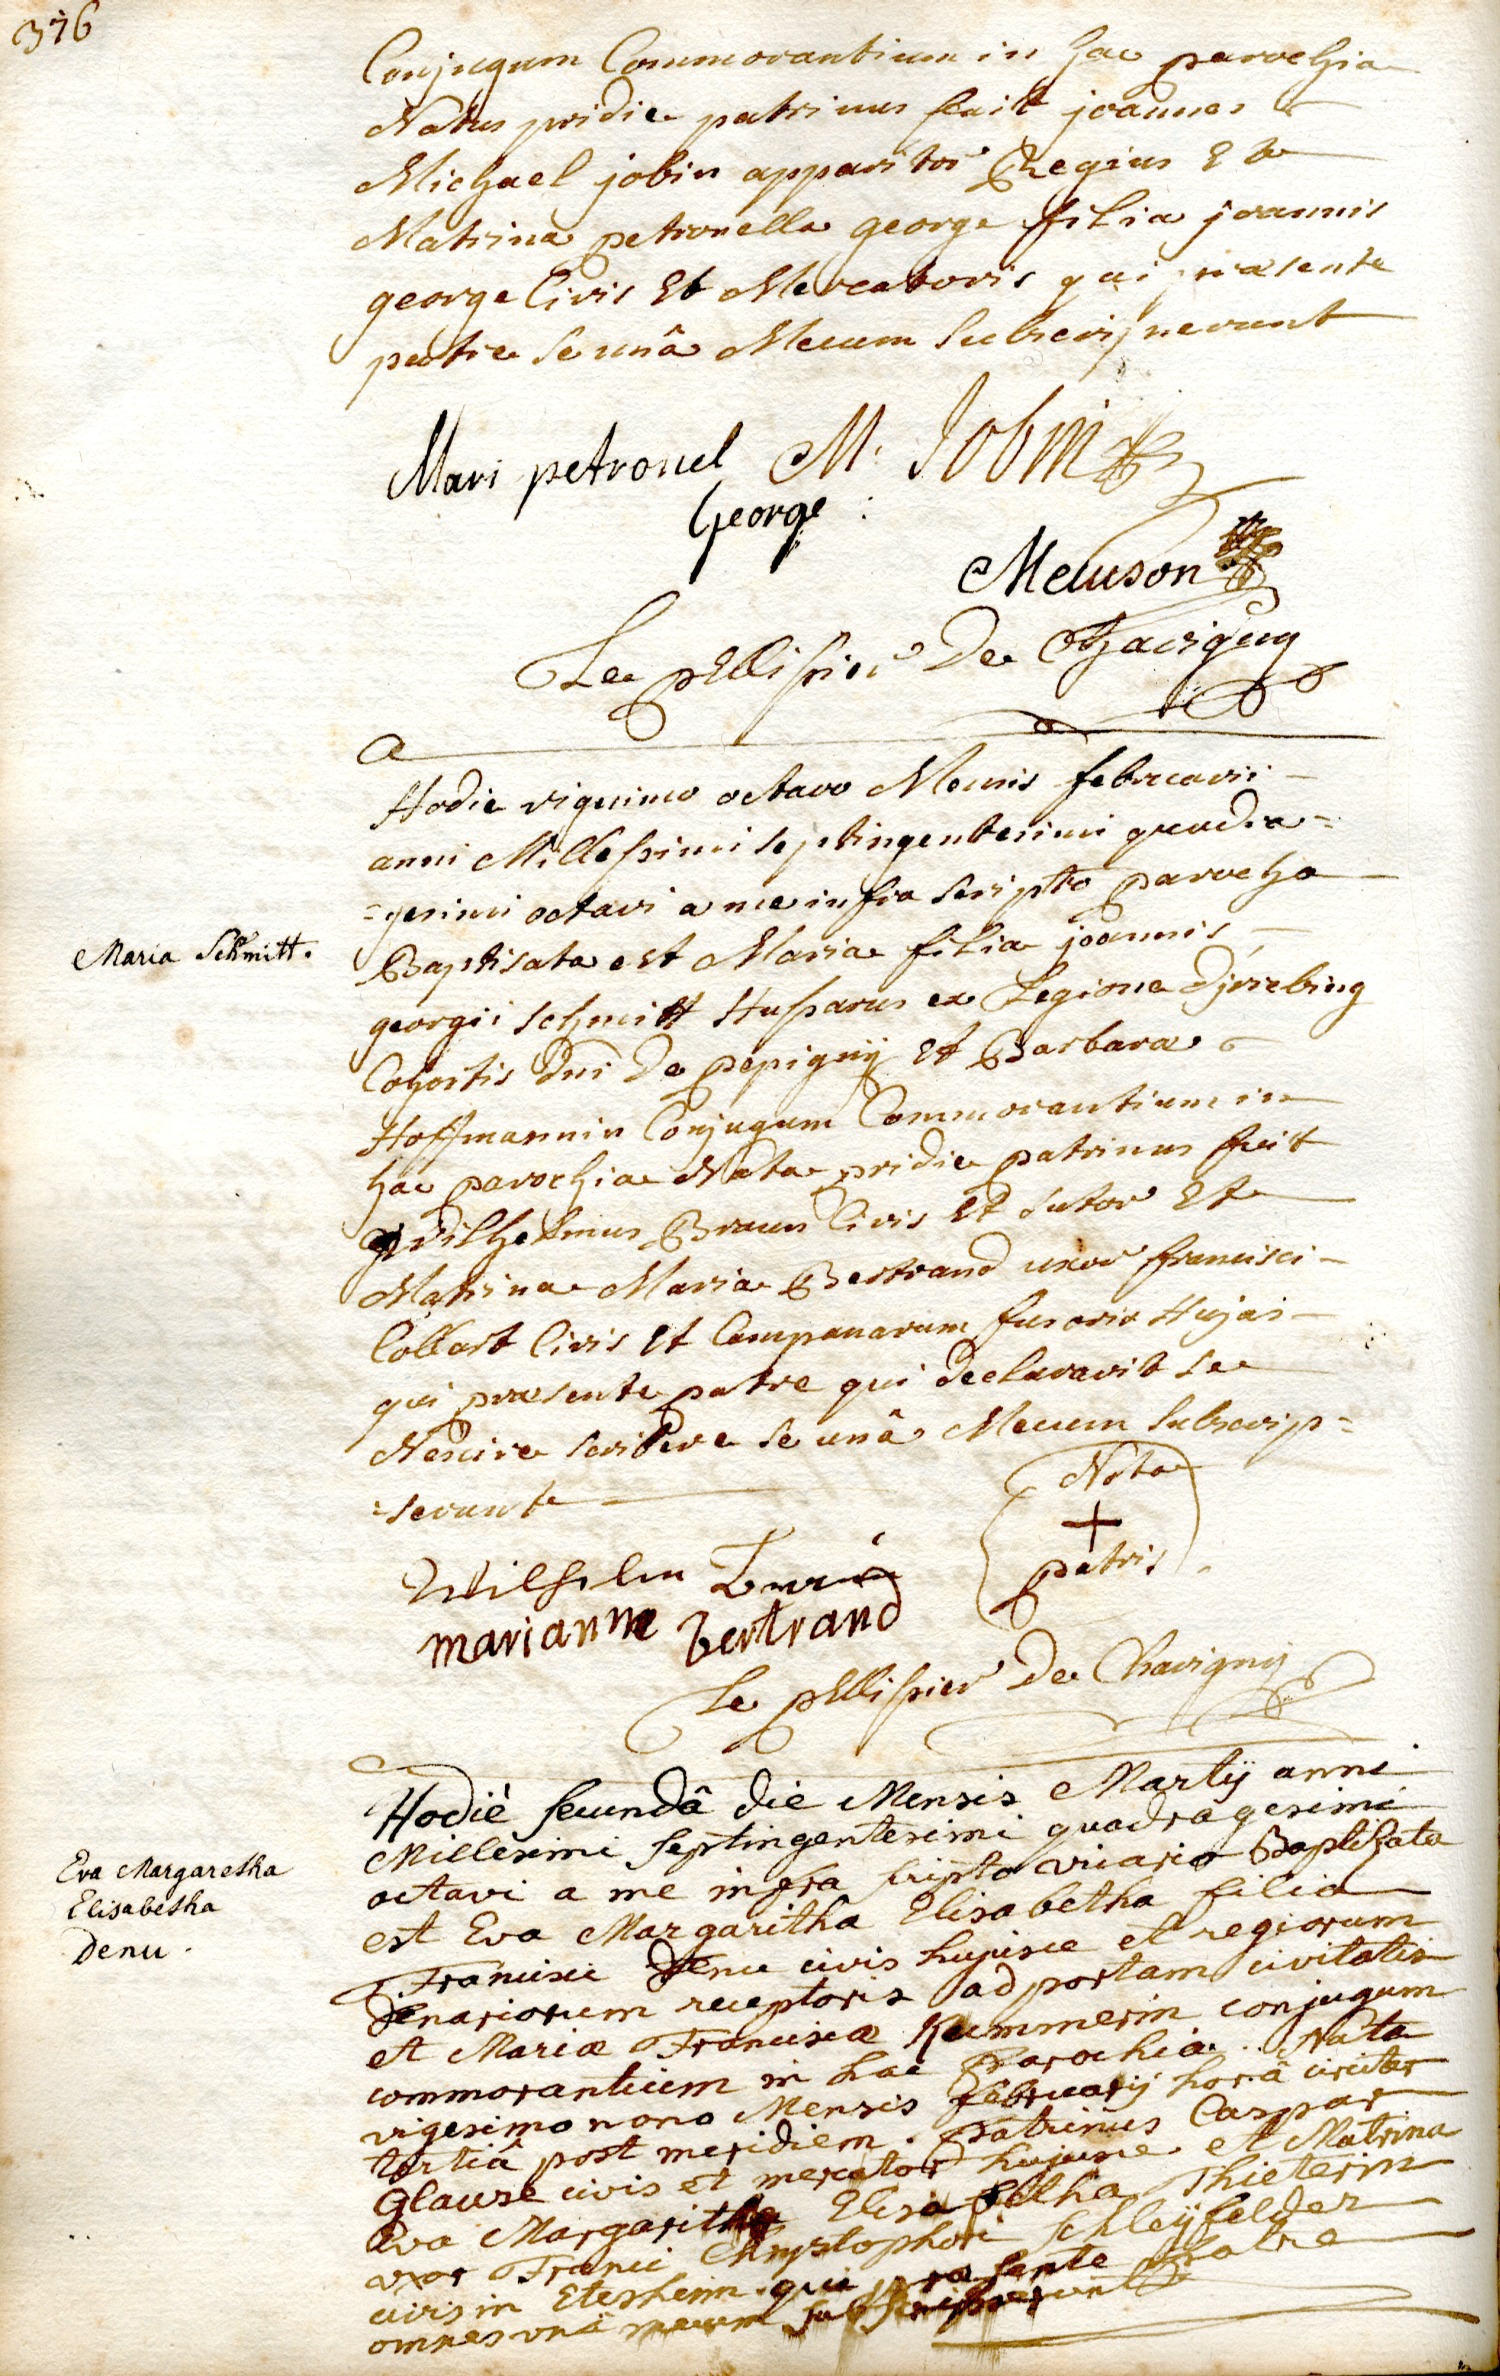 376
Conjugum Commorantium in hac parochia
Natus pridie patrinus fuit joannes
Michael jobin apparitor Regius Et
Matrina petronella george filia joannis
george Civis Et Mercatoris qui praesente
patre se unâ Mecum Subscripserunt
Mari petronel M. Jobin
George
Meuson
Le pellissier De Chavigny
Hodie vigesimo octavo Mensis februarii
anni Millessimi septingentesimi quadra=
=gesimi octavi a me infra scripto parocho
Maria Schmitt.
Baptisata est Maria filia joannis
georgii schmitt Hussarus ex Legione
Cohortis Dni De pepigny Et Barbara
Hoffmannin Conjugum Commorantium in
hac parochia Nata pridie patrinus fuit
Wilhelmus Braun Civis Et sutor Et
Matrina Maria Bertrand uxor francisci
Collart Civis Et Campanarum fusoris Hujas
qui praesente patre qui declaravit se
Nescire scribere se unâ Mecum Subscrip=
=serunt
Nota
+
patris
Wilhelm
marianne bertrand
Le pellissier De Chavigny
Hodiè secundâ die Mensis Martij anni
Millesimi septingentesimi quadragesimi
octavi a me infra scripto vicario Baptizata
Eva Margaretha
Elisabetha
Denu.
est Eva Margaritha Elisabetha filia
Francisci Denu civis hujusce et regiorum
denariorum receptoris ad portam civitatis
et Mariæ Franciscæ Kummerin conjugum
commorantium in hac Parochia. Nata
vigesimo nono Mensis februarij horâ circiter
tertiâ post meridiem. Patrinus Caspar
Glause civis et mercator hujusce et Matrina
Eva Margaritha Elisabetha Thieterin
uxor Franci Chrystophori Schleijfelder
civis in Etesheim. qui præsente Patre
omnes unâ mecum subscripserunt